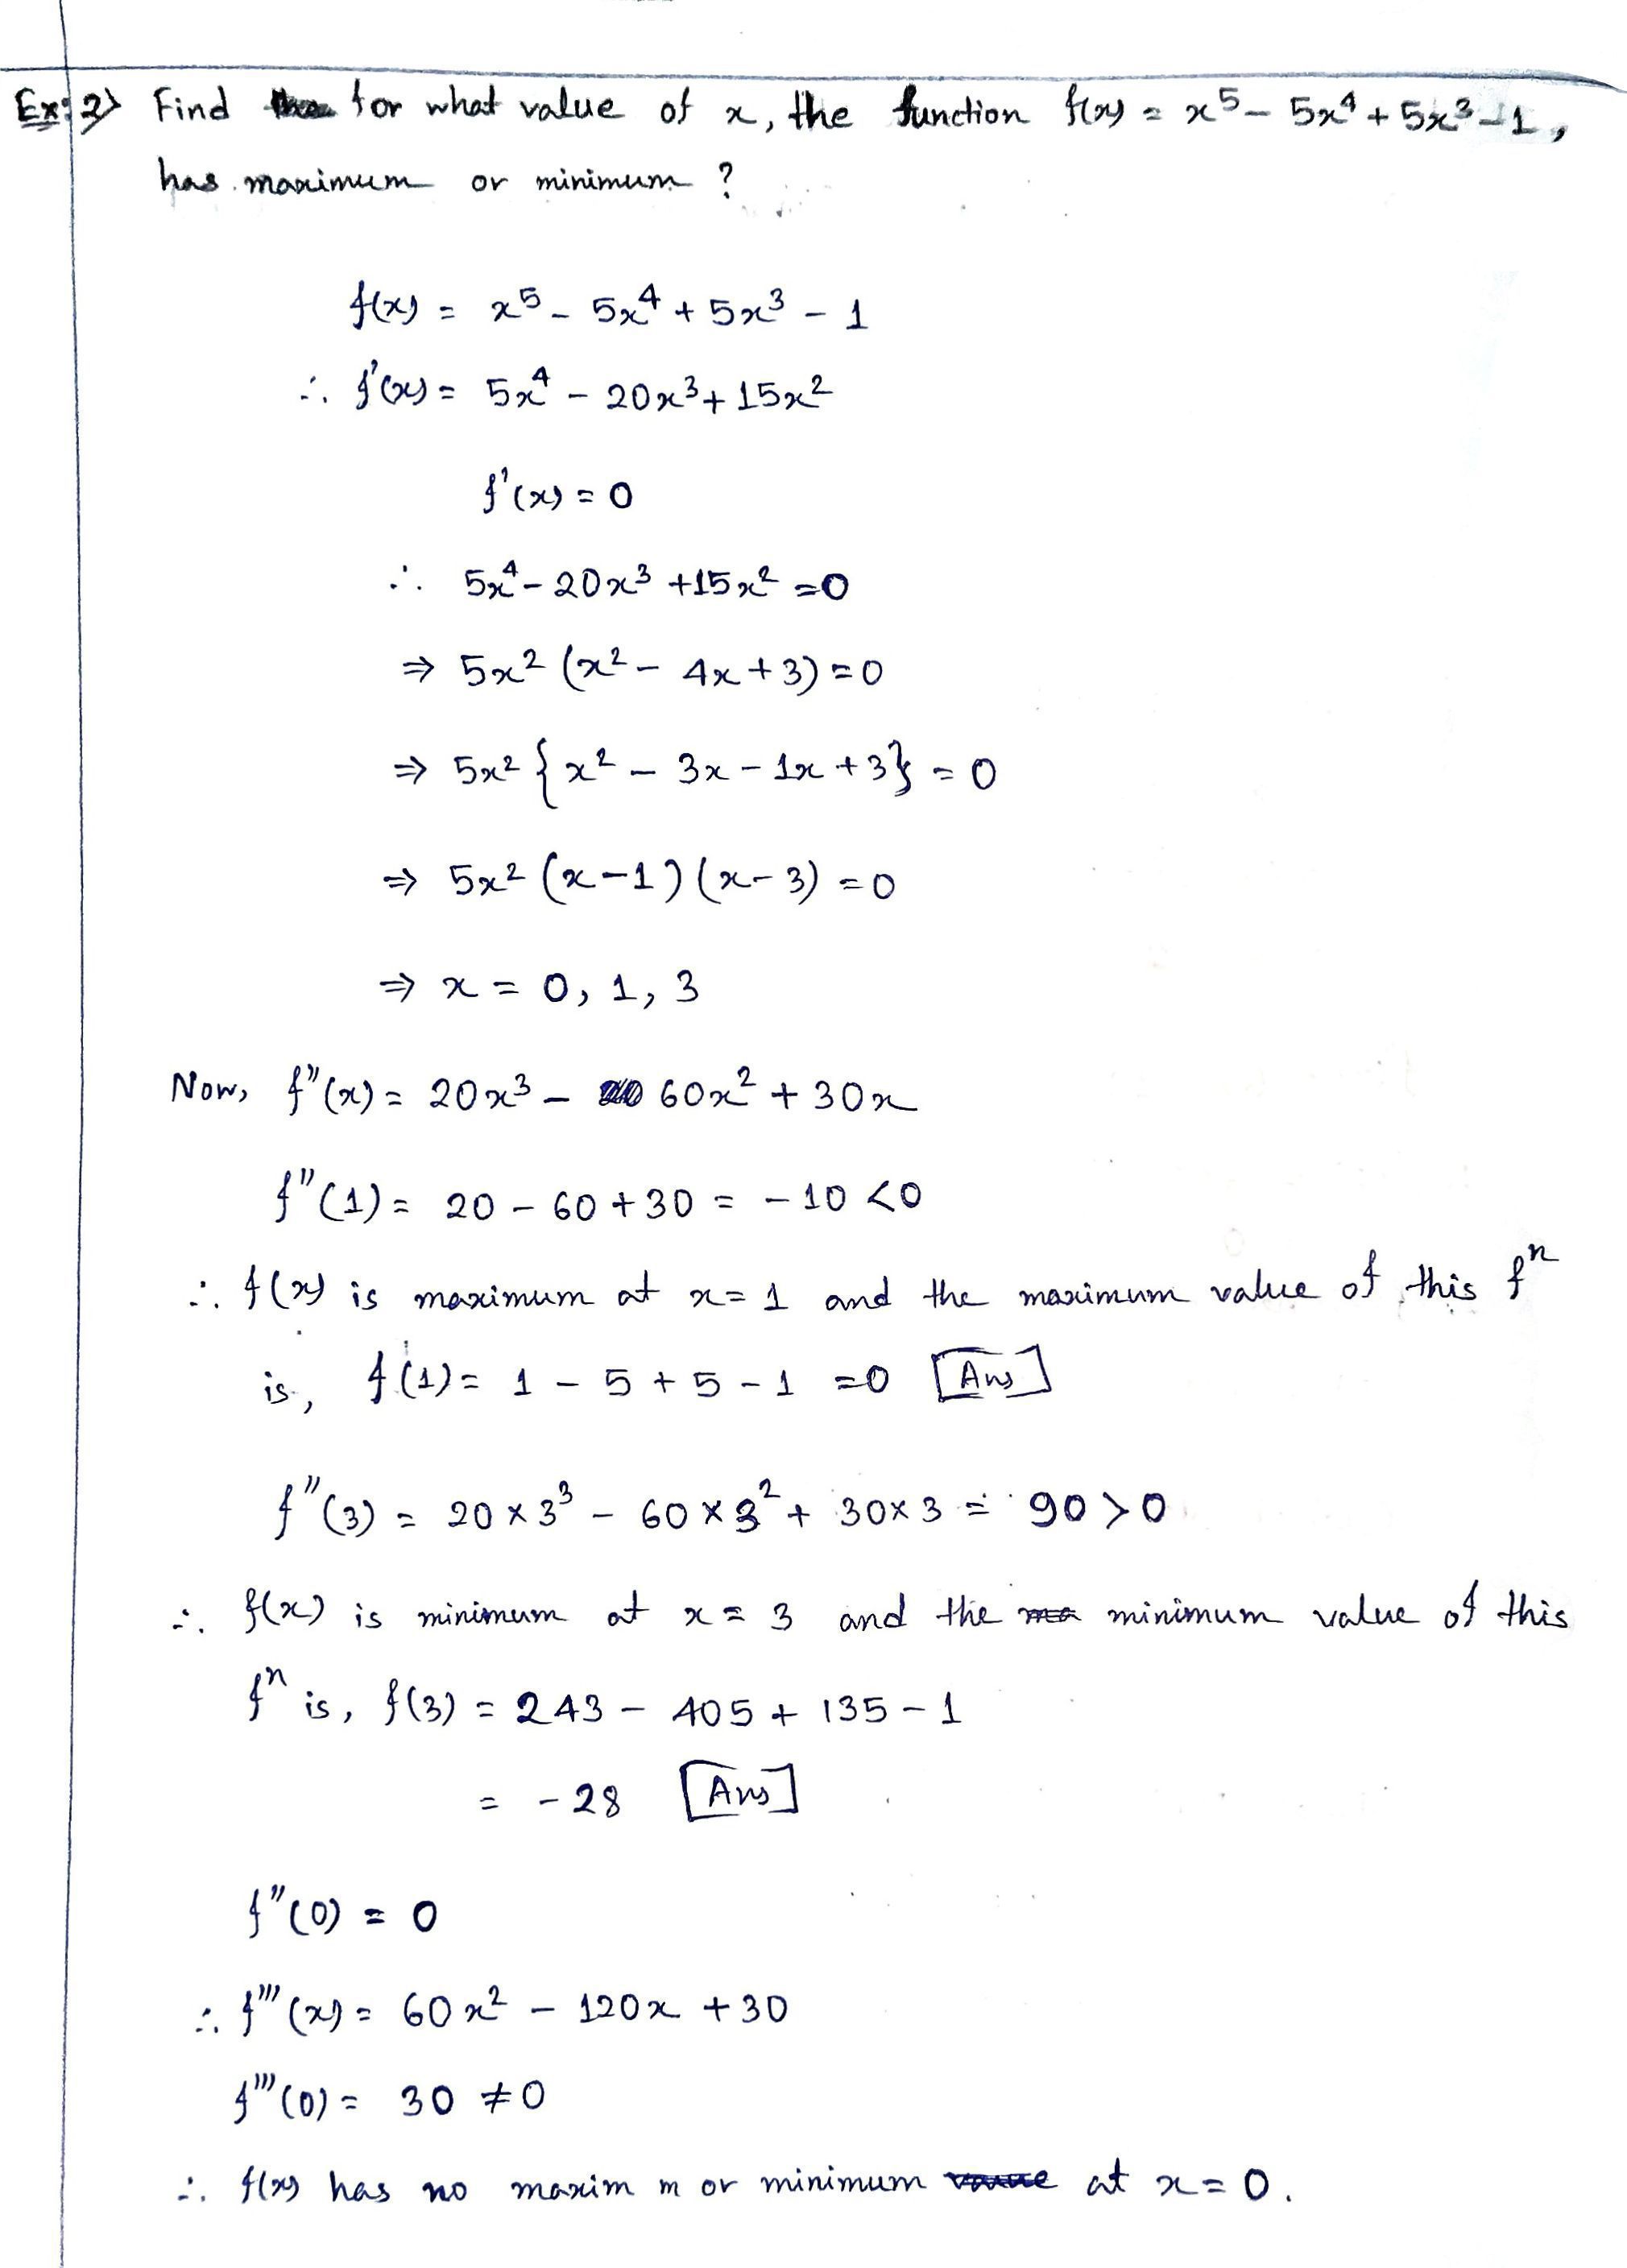 Ex: 2) Find for what value of x, the function f(x) = x⁵ - 5x⁴ + 5x³ - 1,
has maximum or minimum ?
f(x) = x⁵ - 5x⁴ + 5x³ - 1
∴ f'(x) = 5x⁴ - 20x³ + 15x²
f'(x) = 0
∴ 5x⁴ - 20x³ + 15x² = 0
⇒ 5x² (x² - 4x + 3) = 0
⇒ 5x² {x² - 3x - 1x + 3} = 0
⇒ 5x² (x - 1) (x - 3) = 0
⇒ x = 0, 1, 3
Now, f''(x) = 20x³ - 60x² + 30x
f''(1) = 20 - 60 + 30 = - 10 < 0
∴ f(x) is maximum at x = 1 and the maximum value of this fⁿ
is, f(1) = 1 - 5 + 5 - 1 = 0 [Ans]
f''(3) = 20 × 3³ - 60 × 3² + 30 × 3 = 90 > 0
∴ f(x) is minimum at x = 3 and the minimum value of this
fⁿ is, f(3) = 243 - 405 + 135 - 1
= - 28 [Ans]
f''(0) = 0
∴ f'''(x) = 60x² - 120x + 30
f'''(0) = 30 ≠ 0
∴ f(x) has no maxim m or minimum at x = 0.